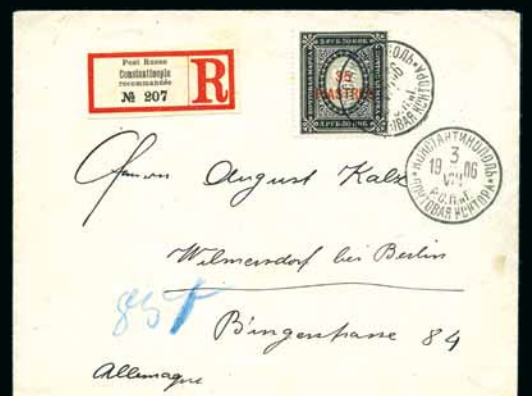 Post Russe
Constantinople
recommandée
№ 207
R
35
PIASTRES
КОНСТАНТИНОПОЛЬ
3
19 06
VII
Р.О.П.иТ.
ПОРТОВАЯ КОНТОРА
Herrn August Kalz
Wilmersdorf bei Berlin
Bingerstrasse 84
Allemagne